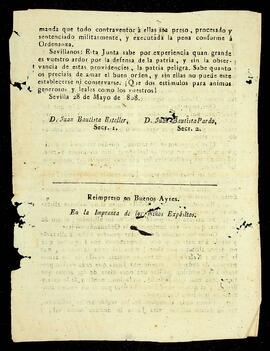 manda que todo contraventor à ellas sea preso, procesado y
sentenciado militarmente, y executada la pena conforme á
Ordenanza.
Sevillanos: Esta Junta sabe por experiencia quan grande
es vuestro ardor por la defensa de la patria, y sin la obser-
vancia de estas providencias, la patria peligra. Sabe quanto
os preciais de amar el buen orden, y sin ellas no puede este
establecerse ni conservarse. ¡Que dos estimulos para animos
generosos y leales como los vuestros!
Sevilla 28 de Mayo de 808.
D. Juan Bautista Esteller, D. Juan Bautista Pardo,
Secr. 1. Secr. 2.
Reimpreso en Buenos Ayres.
En la Imprenta de los Niños Expósitos.